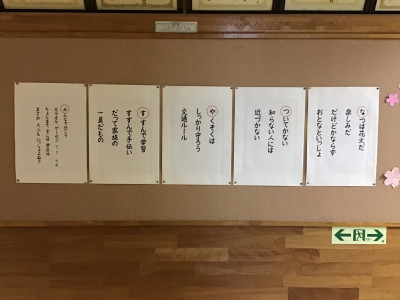 なつは花火だ
楽しみだ
だけどかならず
おとなといっしょ
ついてかない
知らない人には
近づかない
やくそくは
しっかり守ろう
交通ルール
すすんで学習
すすんで手伝い
だって家族の
一員だもの